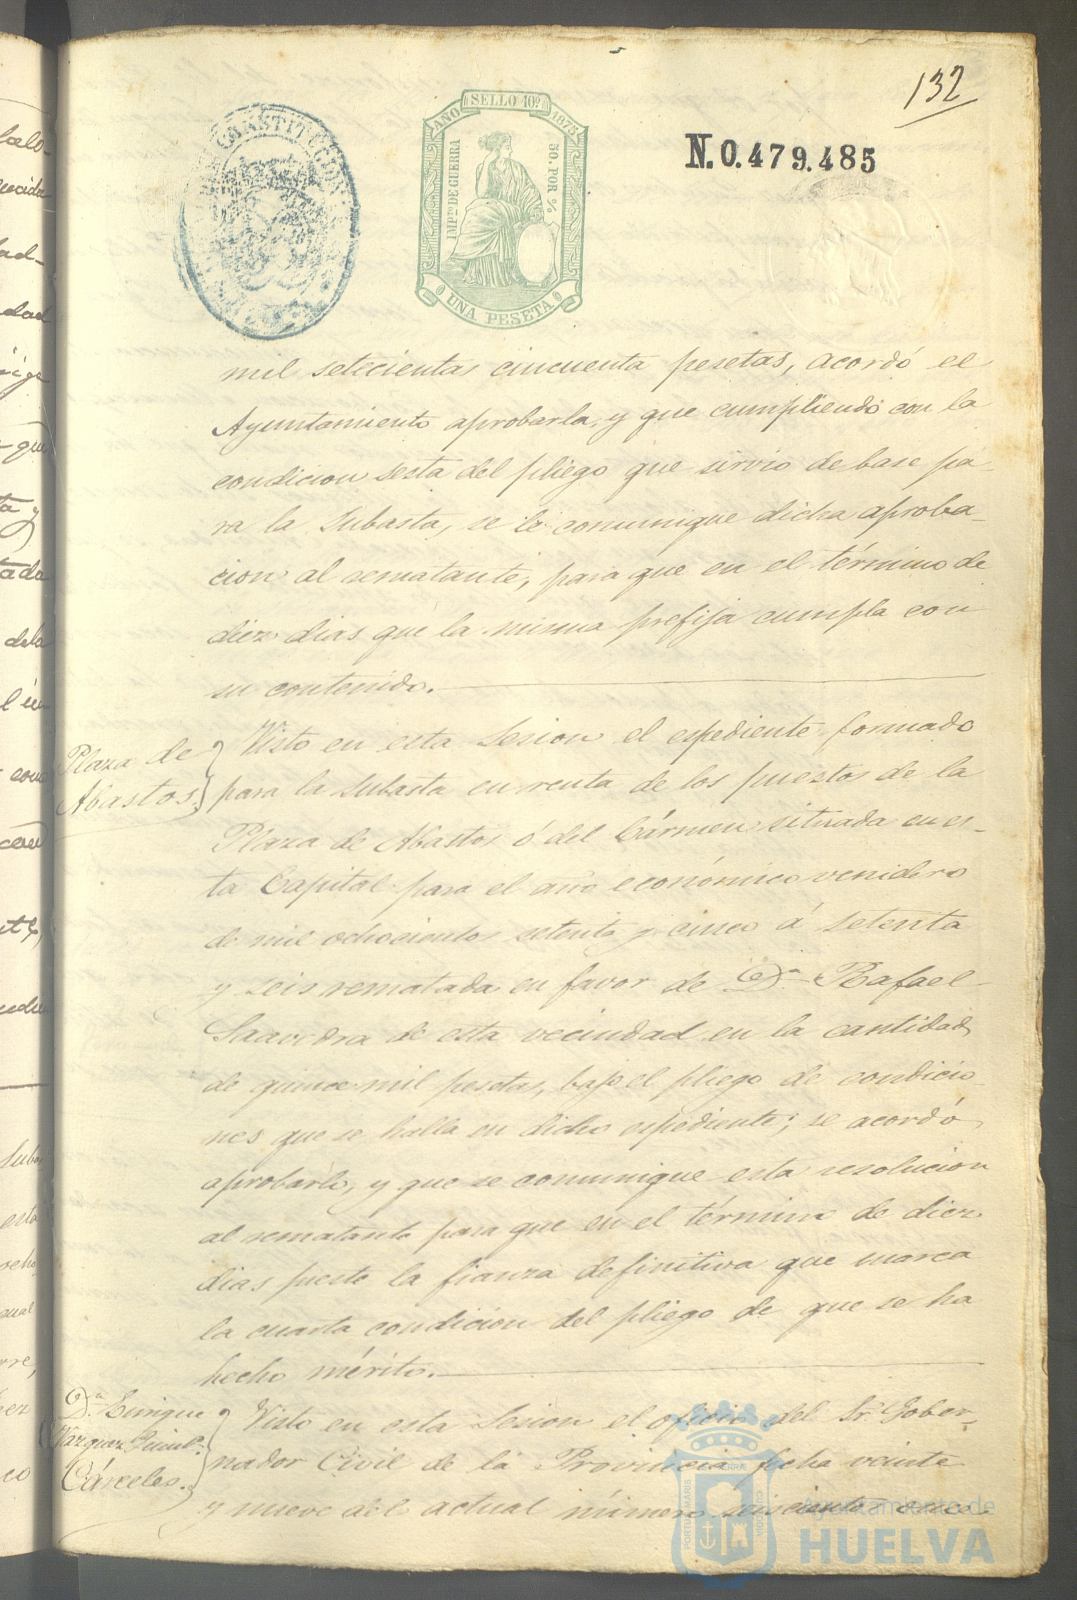 132
AÑO SELLO 10º 1875
IMPTO DE GUERRA
50. POR %
UNA PESETA
CONSTITUCION
N. 0.479.485
mil setecientas cincuenta pesetas, acordó el
Ayuntamiento aprobarla, y que cumpliendo con la
condicion sesta del pliego que sirvio de base pa-
ra la subasta, se le comunique dicha aproba-
cion al rematante, para que en el término de
diez dias que la misma prefija cumpla con
su contenido.
Plaza de
Abastos.
Visto en esta Sesion el espediente formado
para la subasta en renta de los puestos de la
Plaza de Abastos ó del Cármen situada en es-
ta Capital para el año económico venidero
de mil ochocientos setenta y cinco á setenta
y seis rematada en favor de Dn Rafael
Saavedra de esta vecindad en la cantidad
de quince mil pesetas, bajo el pliego de condicio-
nes que se halla en dicho espediente; se acordó
aprobarlo, y que se comunique esta resolucion
al rematante para que en el término de diez
dias preste la fianza definitiva que marca
la cuarta condicion del pliego de que se ha
hecho mérito.
Dn Enrique
Vazquez
Cárceles.
Visto en esta Sesion el oficio del Sr. Gober-
nador Civil de la Provincia fecha veinte
y nueve del actual número seiscientos
Ayuntamiento de
HUELVA